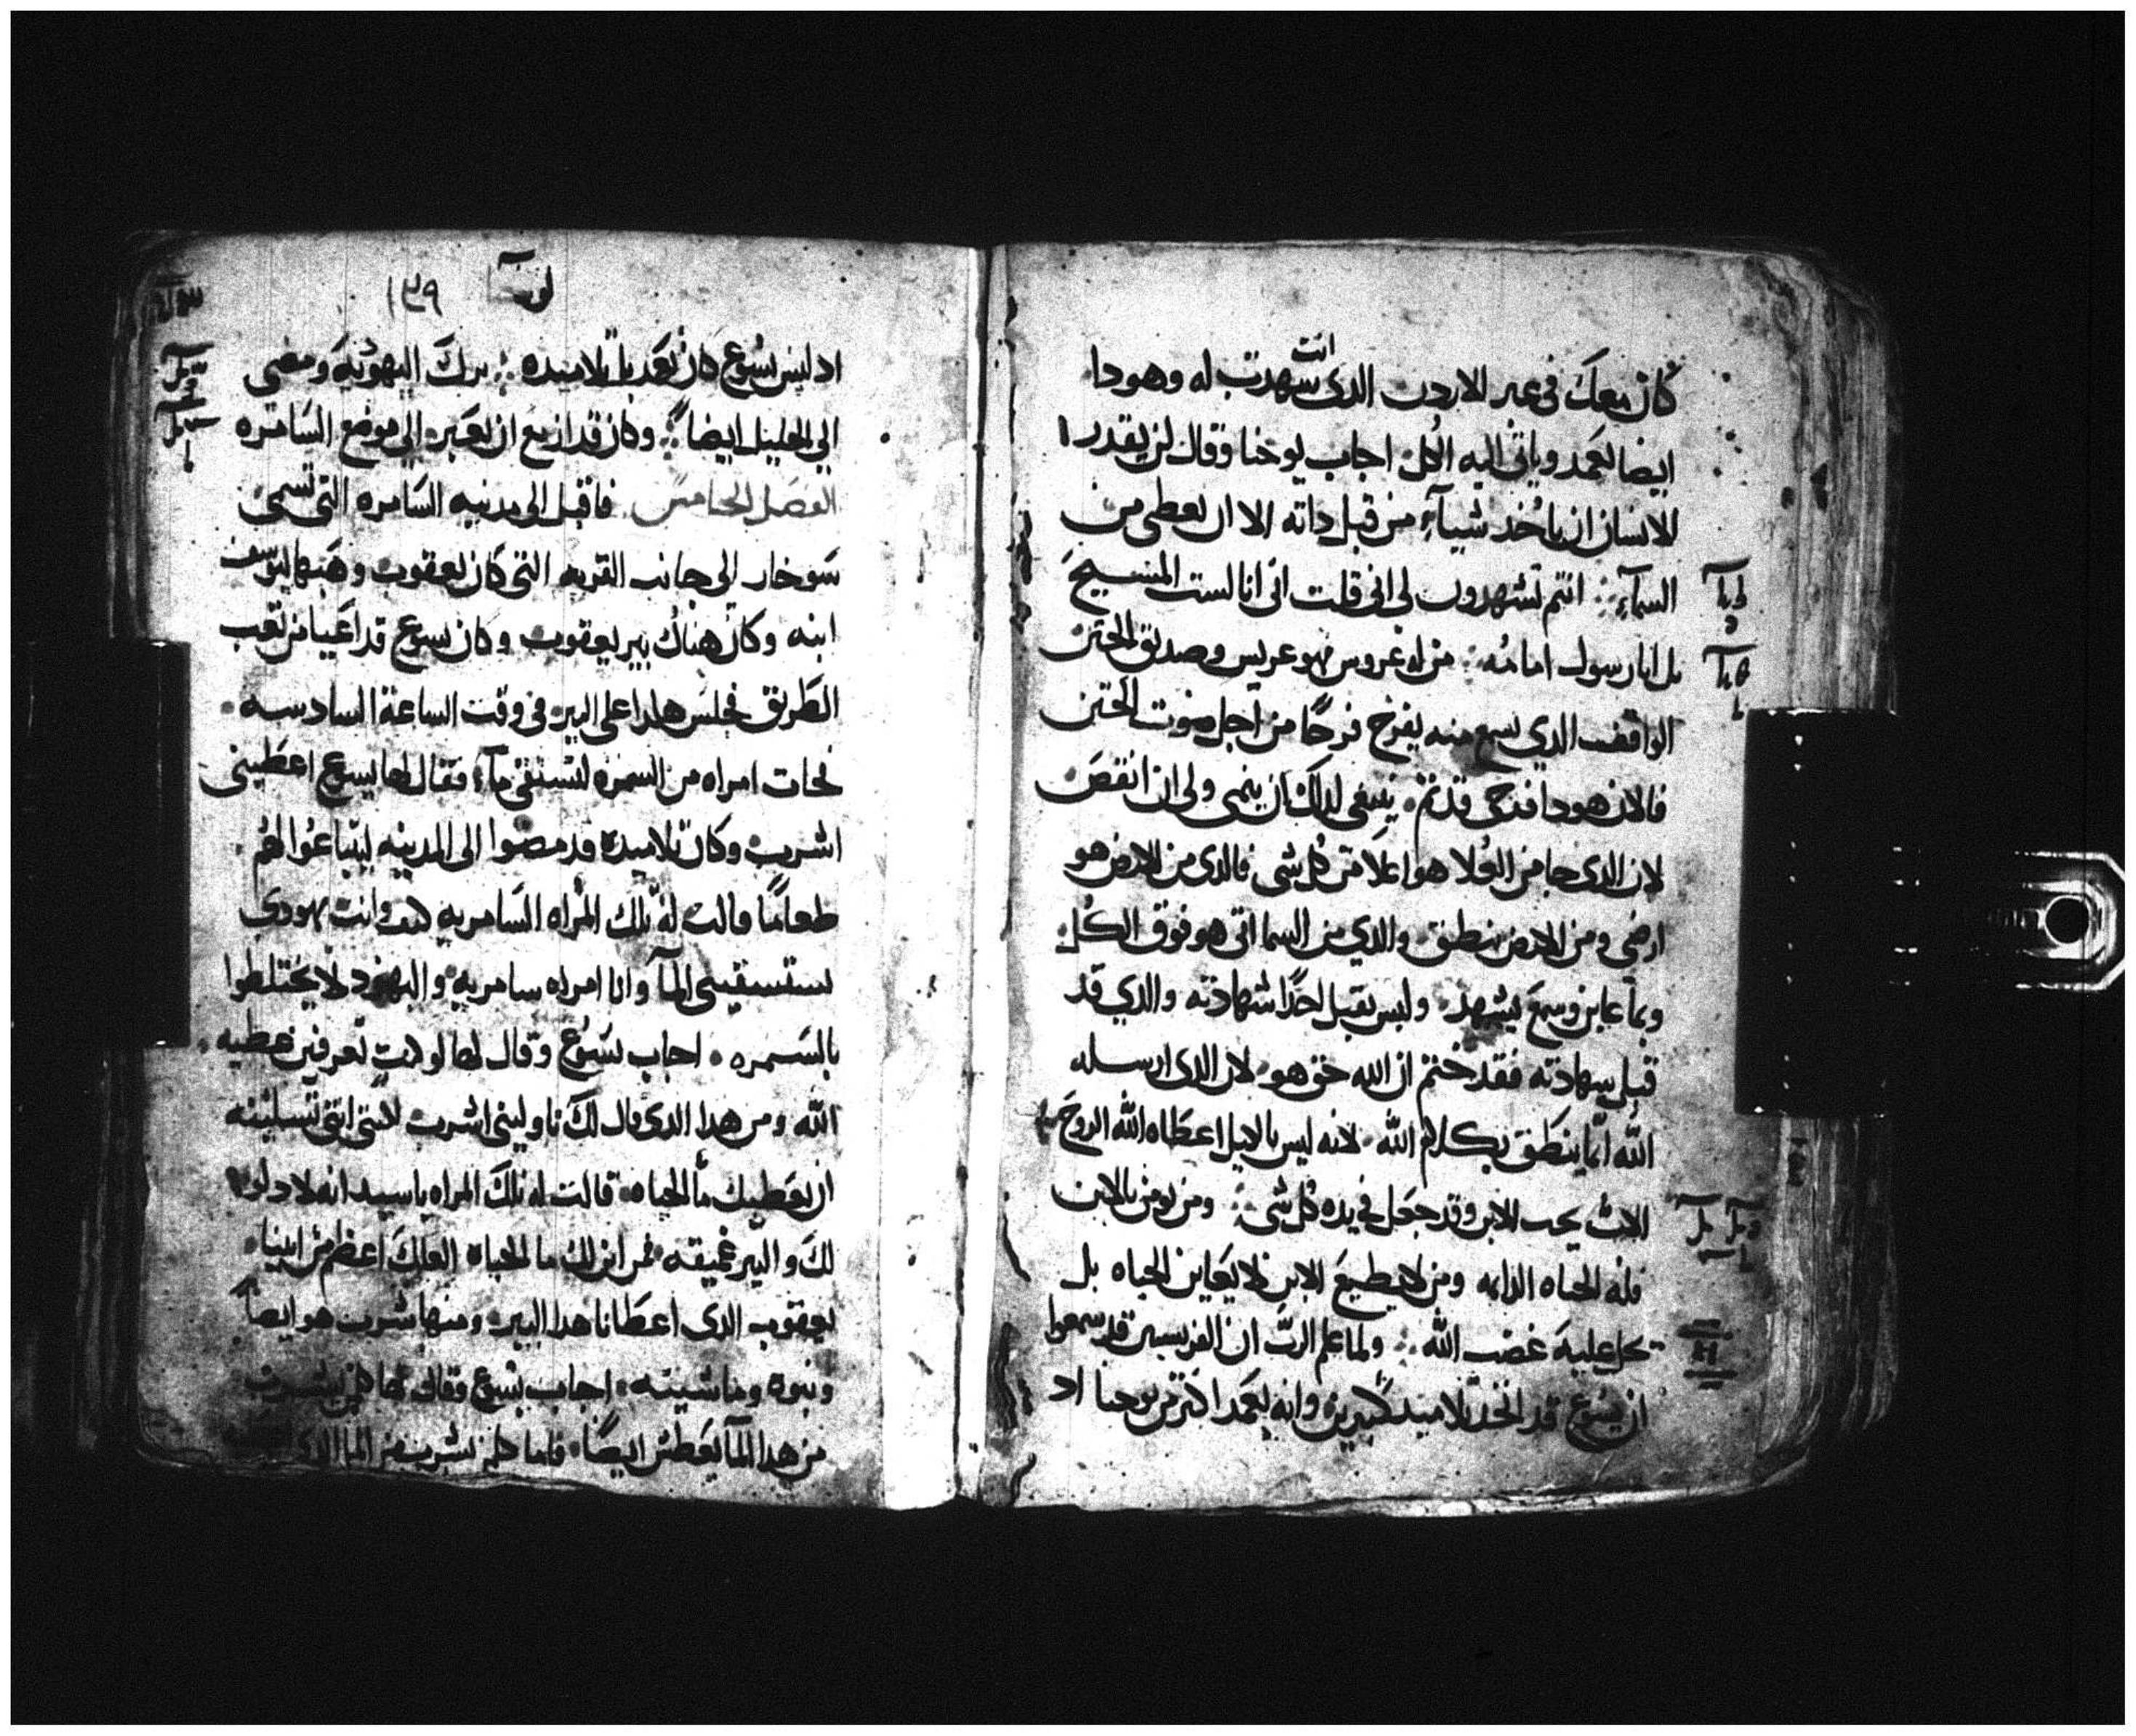 كان معك في عبر الاردن الدى انت شهدت له وهودا
ايضا يعمد وياتى اليه الكل اجاب يوحنا وقال لن يقدر
الانسان ان ياخد شيآء من قبل داته الا ان يعطى من
السمآء انتم تشهدون لى انى قلت انى انا لست المسيح
بل انا رسول امامه من له عروس فهو عريس وصديق الختن
الواقف الدي يسمع منه يفرح فرحًا من اجل صوت الختن
فالان هودا فرحى قد تم ينبغى لداك ان ينمى ولى ان انقص
لان الدى جا من العُلا هو اعلا من كل شى فالدى من الارض هو
ارضى ومن الارض ينطق والدي من السما اتى هو فوق الكُل
وبما عاين وسمع يشهد وليس يقبل احدًا شهادته والدي قد
قبل شهادته فقد ختم ان الله حق هو لان الدى ارسله
الله انما ينطق بكلام الله لانه ليس بالكيل اعطاه الله الروح
الاب يحب الابن وقد جعل في يده كل شى ومن يومن بالابن
فله الحياه الدايمه ومن لا يطيع الابن فلا يعاين الحياه بل
يحل عليه غضب الله ولما علم الرب ان الفريسين قد سمعوا
ان يسوع قد اتخد تلاميد كثيرين وانه يعمد اكثر من يوحنا اد
١٣٩
اد ليس يسوع كان يعمد بل تلاميده ترك اليهوديه ومضى
الي الجليل ايضًا وكان قد ازمع ان يعبر الي موضع السامره
الفصل الخامس فاقبل الى مدينه السامره التى تسمى
سوخار الى جانب القريه التى كان يعقوب وهبها ليوسف
ابنه وكان هناك بير ليعقوب وكان يسوع قد اعيا من تعب
الطريق فجلس هكدا على البير في وقت الساعة السادسه
فجات امراه من السمره لتستقى مآء فقال لها يسوع اعطينى
اشرب وكان تلاميده قد مضوا الى المدينه ليبتاعوا لهم
طعامًا قالت له تلك المراه السامريه كيف وانت يهودي
تستسقينى المآ وانا امراه سامريه واليهود لا يختلطوا
بالسمره اجاب يسوع وقال لها لو كنت تعرفين عطيه
الله ومن هدا الدى قال لك ناولينى اشرب لكنتى انتى تسلينه
ان يعطيك مآ الحياه قالت له تلك المراه يا سيد انه لا دلو
لك والبير عميقه فمن اين لك ما الحياه العلك اعظم من ابينا
يعقوب الدى اعطانا هدا البير ومنها شرب هو ايضًا
وبنوه وماشيته اجاب يسوع وقال لها كل من يشرب
من هدا المآ يعطش ايضًا فاما كل من يشرب من الما الدى